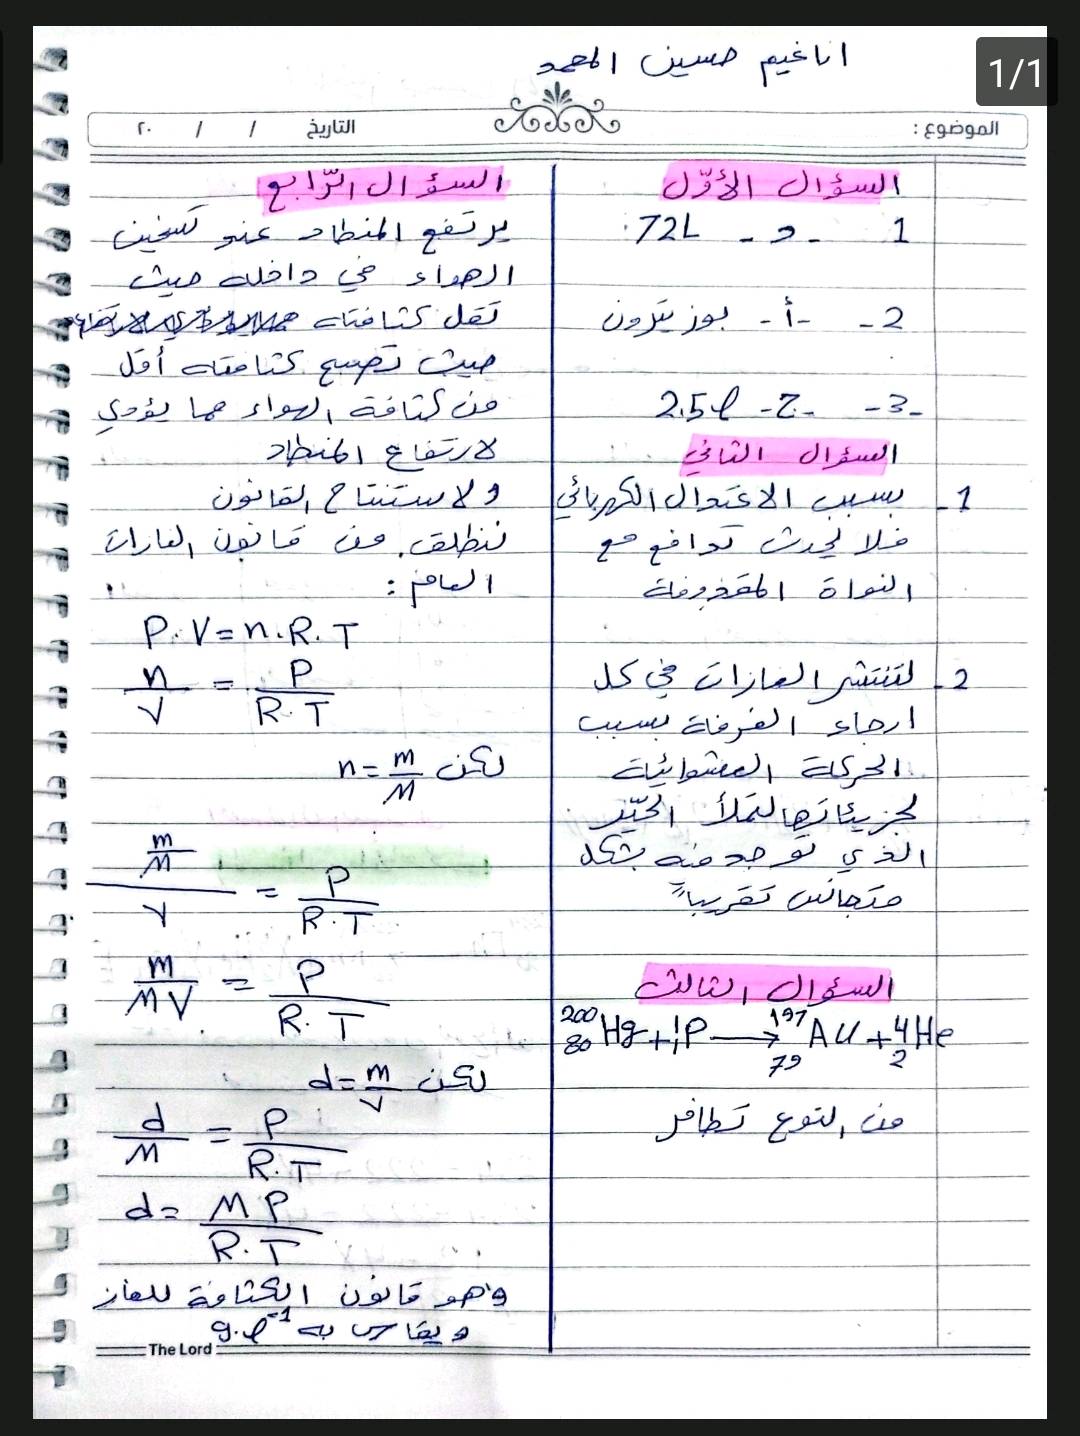 انا غيم حسين المحمد
1/1
الموضوع :
التاريخ / / ٢٠
السؤال الأوّل
1 - د - 72L
2 - أ - بوزيترون
3 - ج - 2.5 l
السؤال الثاني
1 - بسبب الاعتدال الكهربائي
فلا يحدث تدافع مع
النواة المقذوفة
2 - لتنتشر الغازات في كل
ارجاء الغرفة بسبب
الحركة العشوائية
لجزيئاتها لتملأ الحيّز
الذي توجد فيه بشكل
متجانس تقريباً
السؤال الثالث
²⁰⁰₈₀Hg + ¹₁P → ¹⁹⁷₇₉AU + ⁴₂He
من النوع تطافر
السؤال الرّابع
يرتفع المنطاد عند تسخين
الهواء في داخله حيث
تقل كثافته
حيث تصبح كثافته أقل
من كثافة الهواء مما يؤدي
لارتفاع المنطاد
ولاستنتاج القانون
ننطلق من قانون الغازات
العام :
P.V = n.R.T
n/V = P/R.T
لكن n = m/M
m/M / V = P/R.T
m/MV = P/R.T
لكن d = m/V
d/M = P/R.T
d = MP/R.T
وهو قانون الكثافة للغاز
ويقاس به g.l⁻¹
The Lord